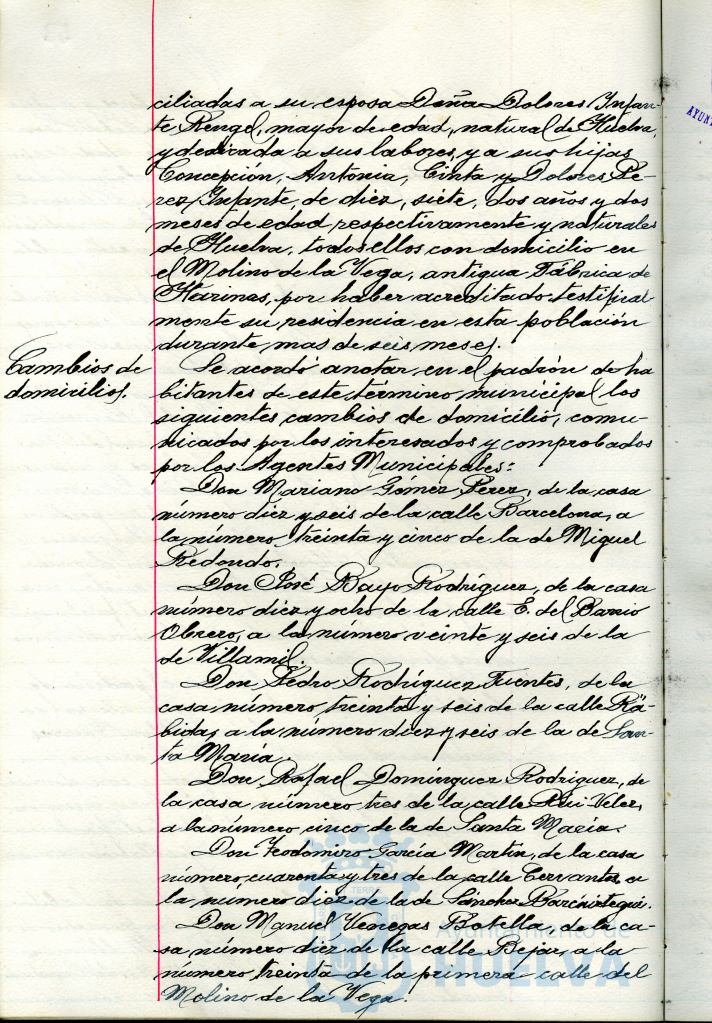 ciliadas a su esposa Doña Dolores Infan-
te Rengel, mayor de edad, natural de Huelva,
y dedicada a sus labores, y a sus hijas
Concepción, Antonia, Cinta y Dolores Pé-
rez Infante, de diez, siete, dos años y dos
meses de edad respectivamente y naturales
de Huelva, todos ellos con domicilio en
el Molino de la Vega, antigua Fábrica de
Harinas, por haber acreditado testifical
mente su residencia en esta población
durante mas de seis meses.
Cambios de
domicilios.
Se acordó anotar en el padrón de ha
bitantes de este término municipal los
siguientes cambios de domicilio, comu-
nicados por los interesados y comprobados
por los Agentes Municipales:
Don Mariano Gómez Perez, de la casa
número diez y seis de la calle Barcelona, a
la número treinta y cinco de la de Miguel
Redondo.
Don José Bayo Rodríguez, de la casa
número diez y ocho de la calle E. del Barrio
Obrero, a la número veinte y seis de la
de Villamil.
Don Pedro Rodríguez Fuentes, de la
casa número treinta y seis de la calle Rá-
bida, a la número diez y seis de la de San-
ta María.
Don Rafael Domínguez Rodriguez, de
la casa número tres de la calle Rui-Velez,
a la número cinco de la de Santa María.
Don Teodomiro García Martín, de la casa
número cuarenta y tres de la calle Cervantes, a
la número diez de la de Sánchez Barcaiztegui.
Don Manuel Venegas Botilla, de la ca-
sa número diez de la calle Bejar, a la
número treinta de la primera calle del
Molino de la Vega.
Ayuntamiento de
HUELVA